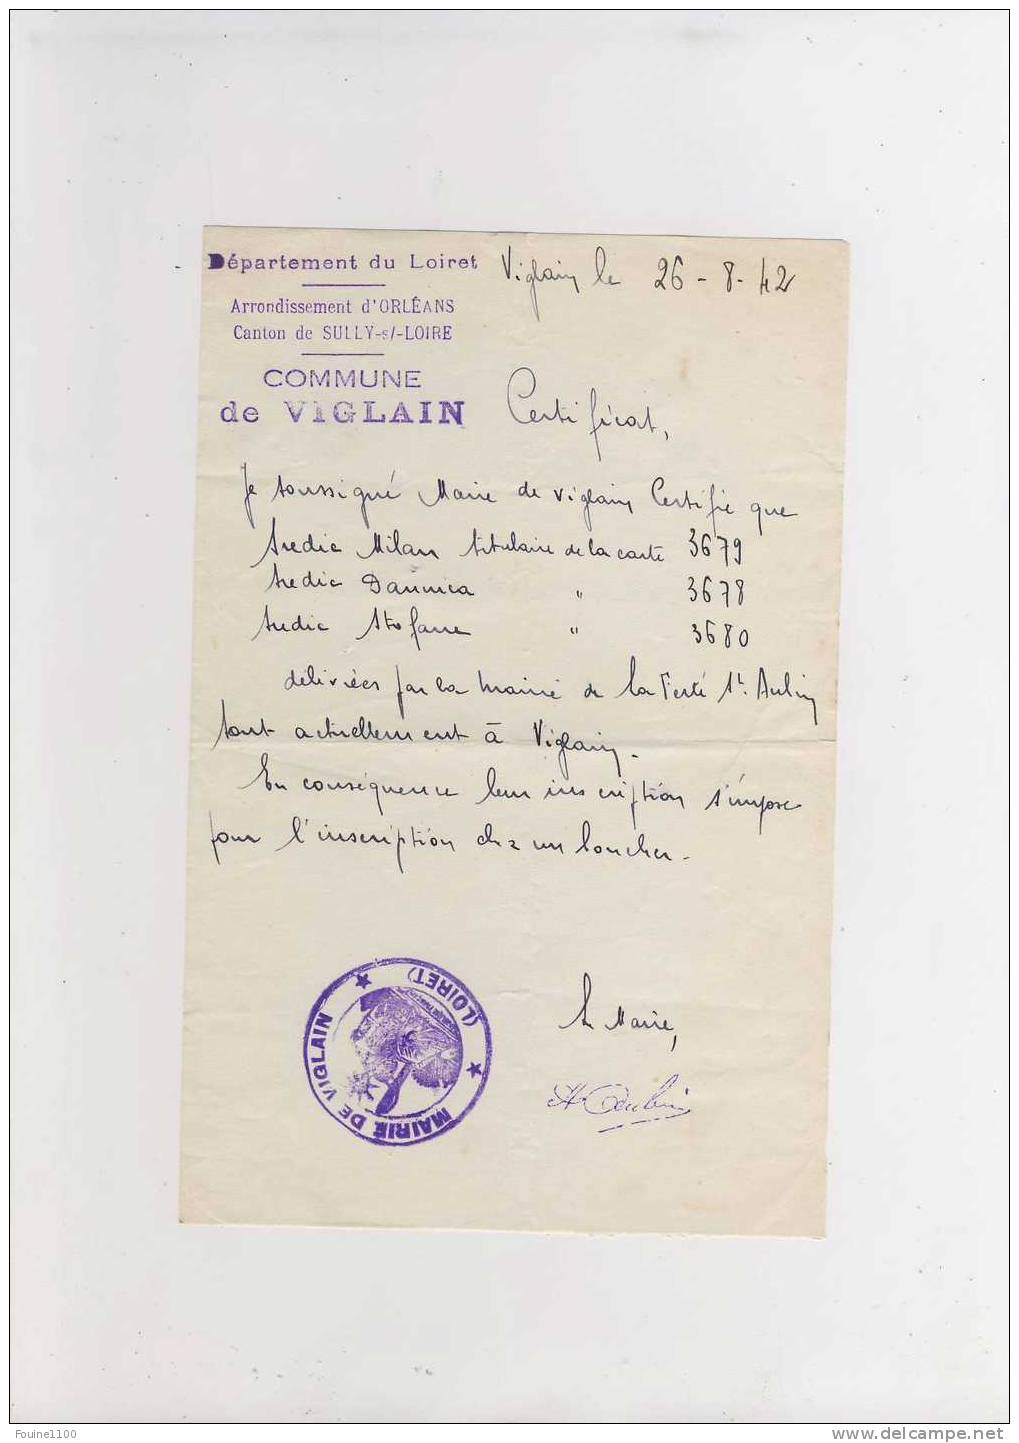 Département du Loiret
Viglain le 26-8-42
Arrondissement d'ORLÉANS
Canton de SULLY-s/-LOIRE
COMMUNE
de VIGLAIN
Certificat,
Je soussigné Maire de Viglain Certifie que
Sredic Milan titulaire de la carte 3679
Sredic Dannica " 3678
Sredic Stofane " 3680
délivrées par la mairie de La Ferté St. Aubin
sont actuellement à Viglain.
En conséquence leur inscription s'impose
pour l'inscription chez un boucher.
MAIRIE DE VIGLAIN
(LOIRET)
Le Maire,
Foune1100
delcampe.net